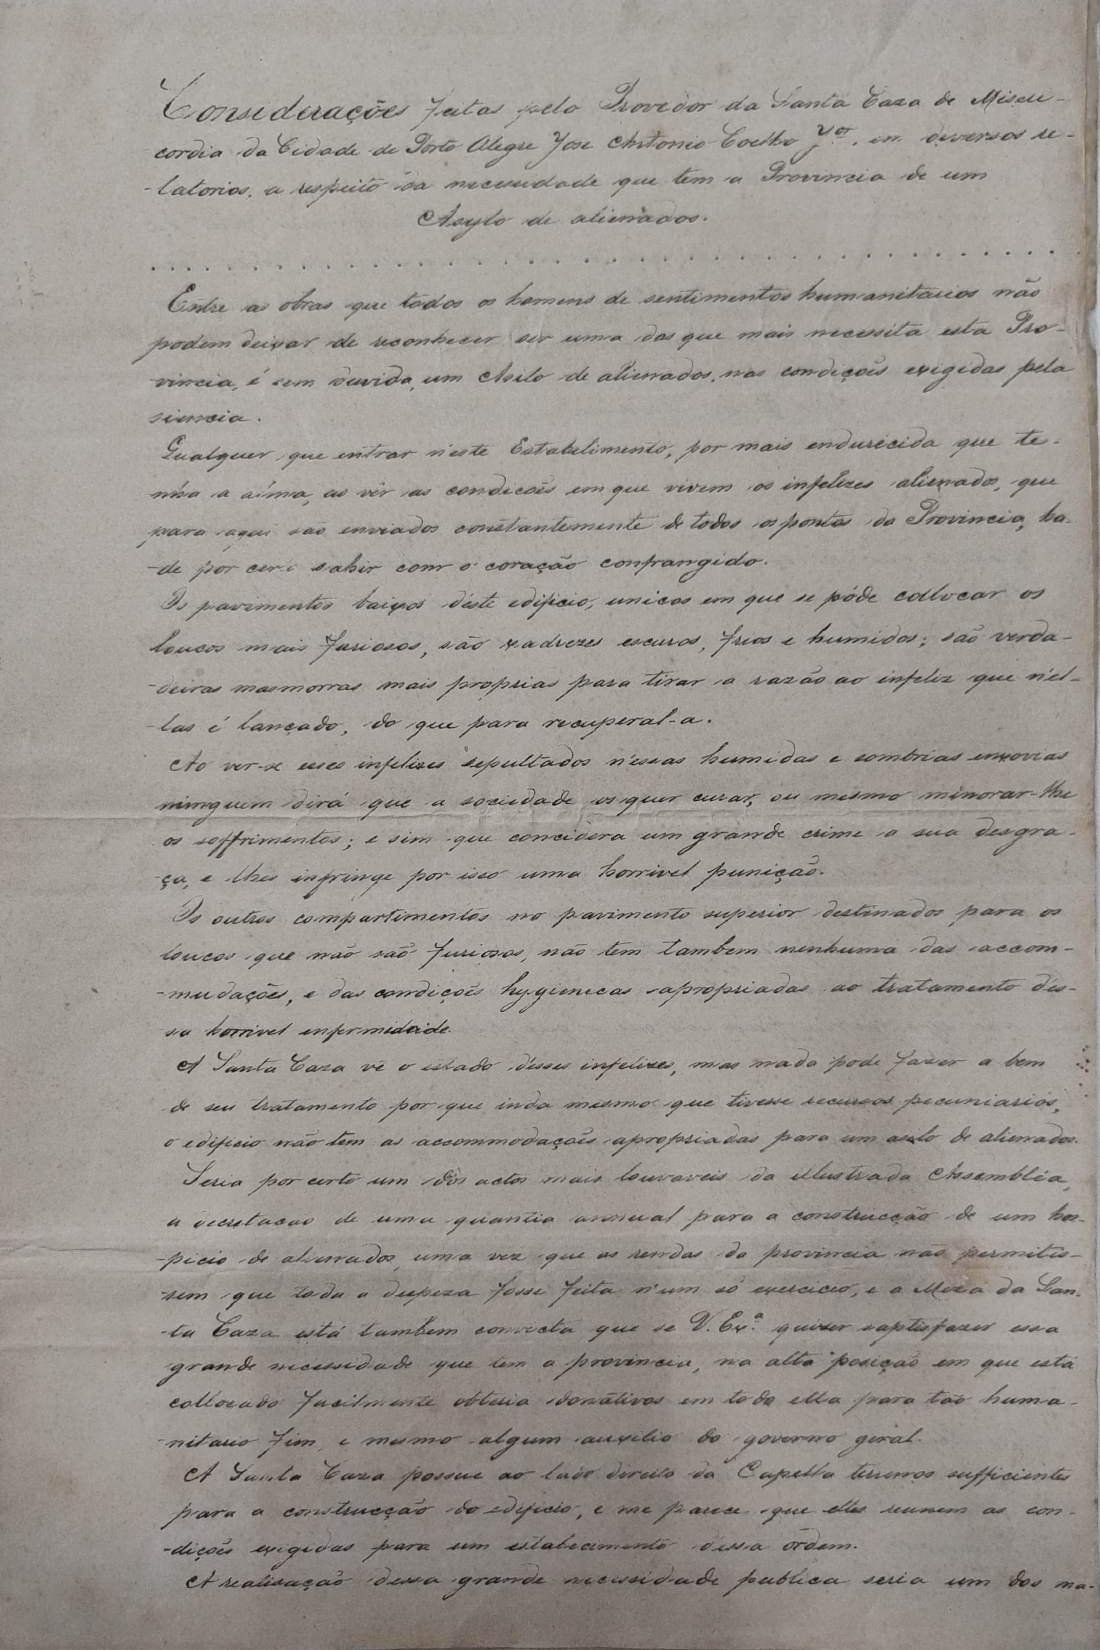 Considerações feitas pelo Provedor da Santa Caza de Miseri-
cordia da Cidade de Porto Alegre José Antonio Coelho Jor. em diversos re-
-latorios, a respeito da necessidade que tem a Provincia de um
Asylo de alienados.
. . . . . . . . . . . . . . . . . . . . . . . . . . . . . . . . . . . . .
Entre as obras que todos os homens de sentimentos humanitarios não
podem deixar de reconhecer ser uma das que mais necessita esta Pro-
-vincia, é sem duvida, um Asilo de alienados, nas condições exigidas pela
siencia.
Qualquer que entrar n'este Estabelimento, por mais endurecida que te-
nha a alma, ao vêr as condicões em que vivem os infelizes alienados, que
para aqui são enviados constantemente de todos os pontos da Provincia, ha-
-de por certo sahir com o coração confrangido.
Os pavimentos baixos d'este edificio, unicos em que se póde collocar os
loucos mais furiosos, são xadrezes escuros, frios e humidos; são verda-
-deiras masmorras mais proprias para tirar a razão ao infeliz que n'el-
-las é lançado, do que para recuperal-a.
Ao ver-se esses infelizes sepultados n'essas humidas e sombrias enxovias
ninguem dirá que a sociedade os quer curar, ou mesmo minorar-lhe
os soffrimentos; e sim que concidera um grande crime a sua desgra-
-ça, e lhes infringe por isso uma horrivel punição.
Os outros compartimentos no pavimento superior destinados para os
loucos que não são furiosos, não tem tambem nenhuma das accom-
-mudações, e das condições hygienicas apropriadas ao tratamento des-
sa horrivel enfermidade.
A Santa Caza vê o estado d'esses infelizes, mas nada pode fazer a bem
de seu tratamento por que inda mesmo que tivesse recursos pecuniarios,
o edificio não tem as accommodações apropriadas para um asilo de alienados.
Seria por certo um dos actos mais louvaveis da illustrada Assembléa,
a decretacao de uma quantia annual para a construcção de um hos-
-picio de alienados, uma vez que as rendas da provincia não permitis-
-sem que toda a despeza fosse feita n'um só exercicio, e a Meza da San-
-ta Caza está tambem convicta que se V. Exa. quizer saptisfazer essa
grande necessidade que tem a provincia, na alta posição em que está
collocado facilmente obteria donativos em toda ella para tão huma-
-nitario fim, e mesmo algum auxilio do governo geral.
A Santa Caza possue ao lado direito da Capella terrenos sufficientes
para a construcção do edificio, e me parece que elles reunem as con-
-dições exigidas para um estabecimento dessa ordem.
A realisação dessa grande necessidade publica seria um dos ma-